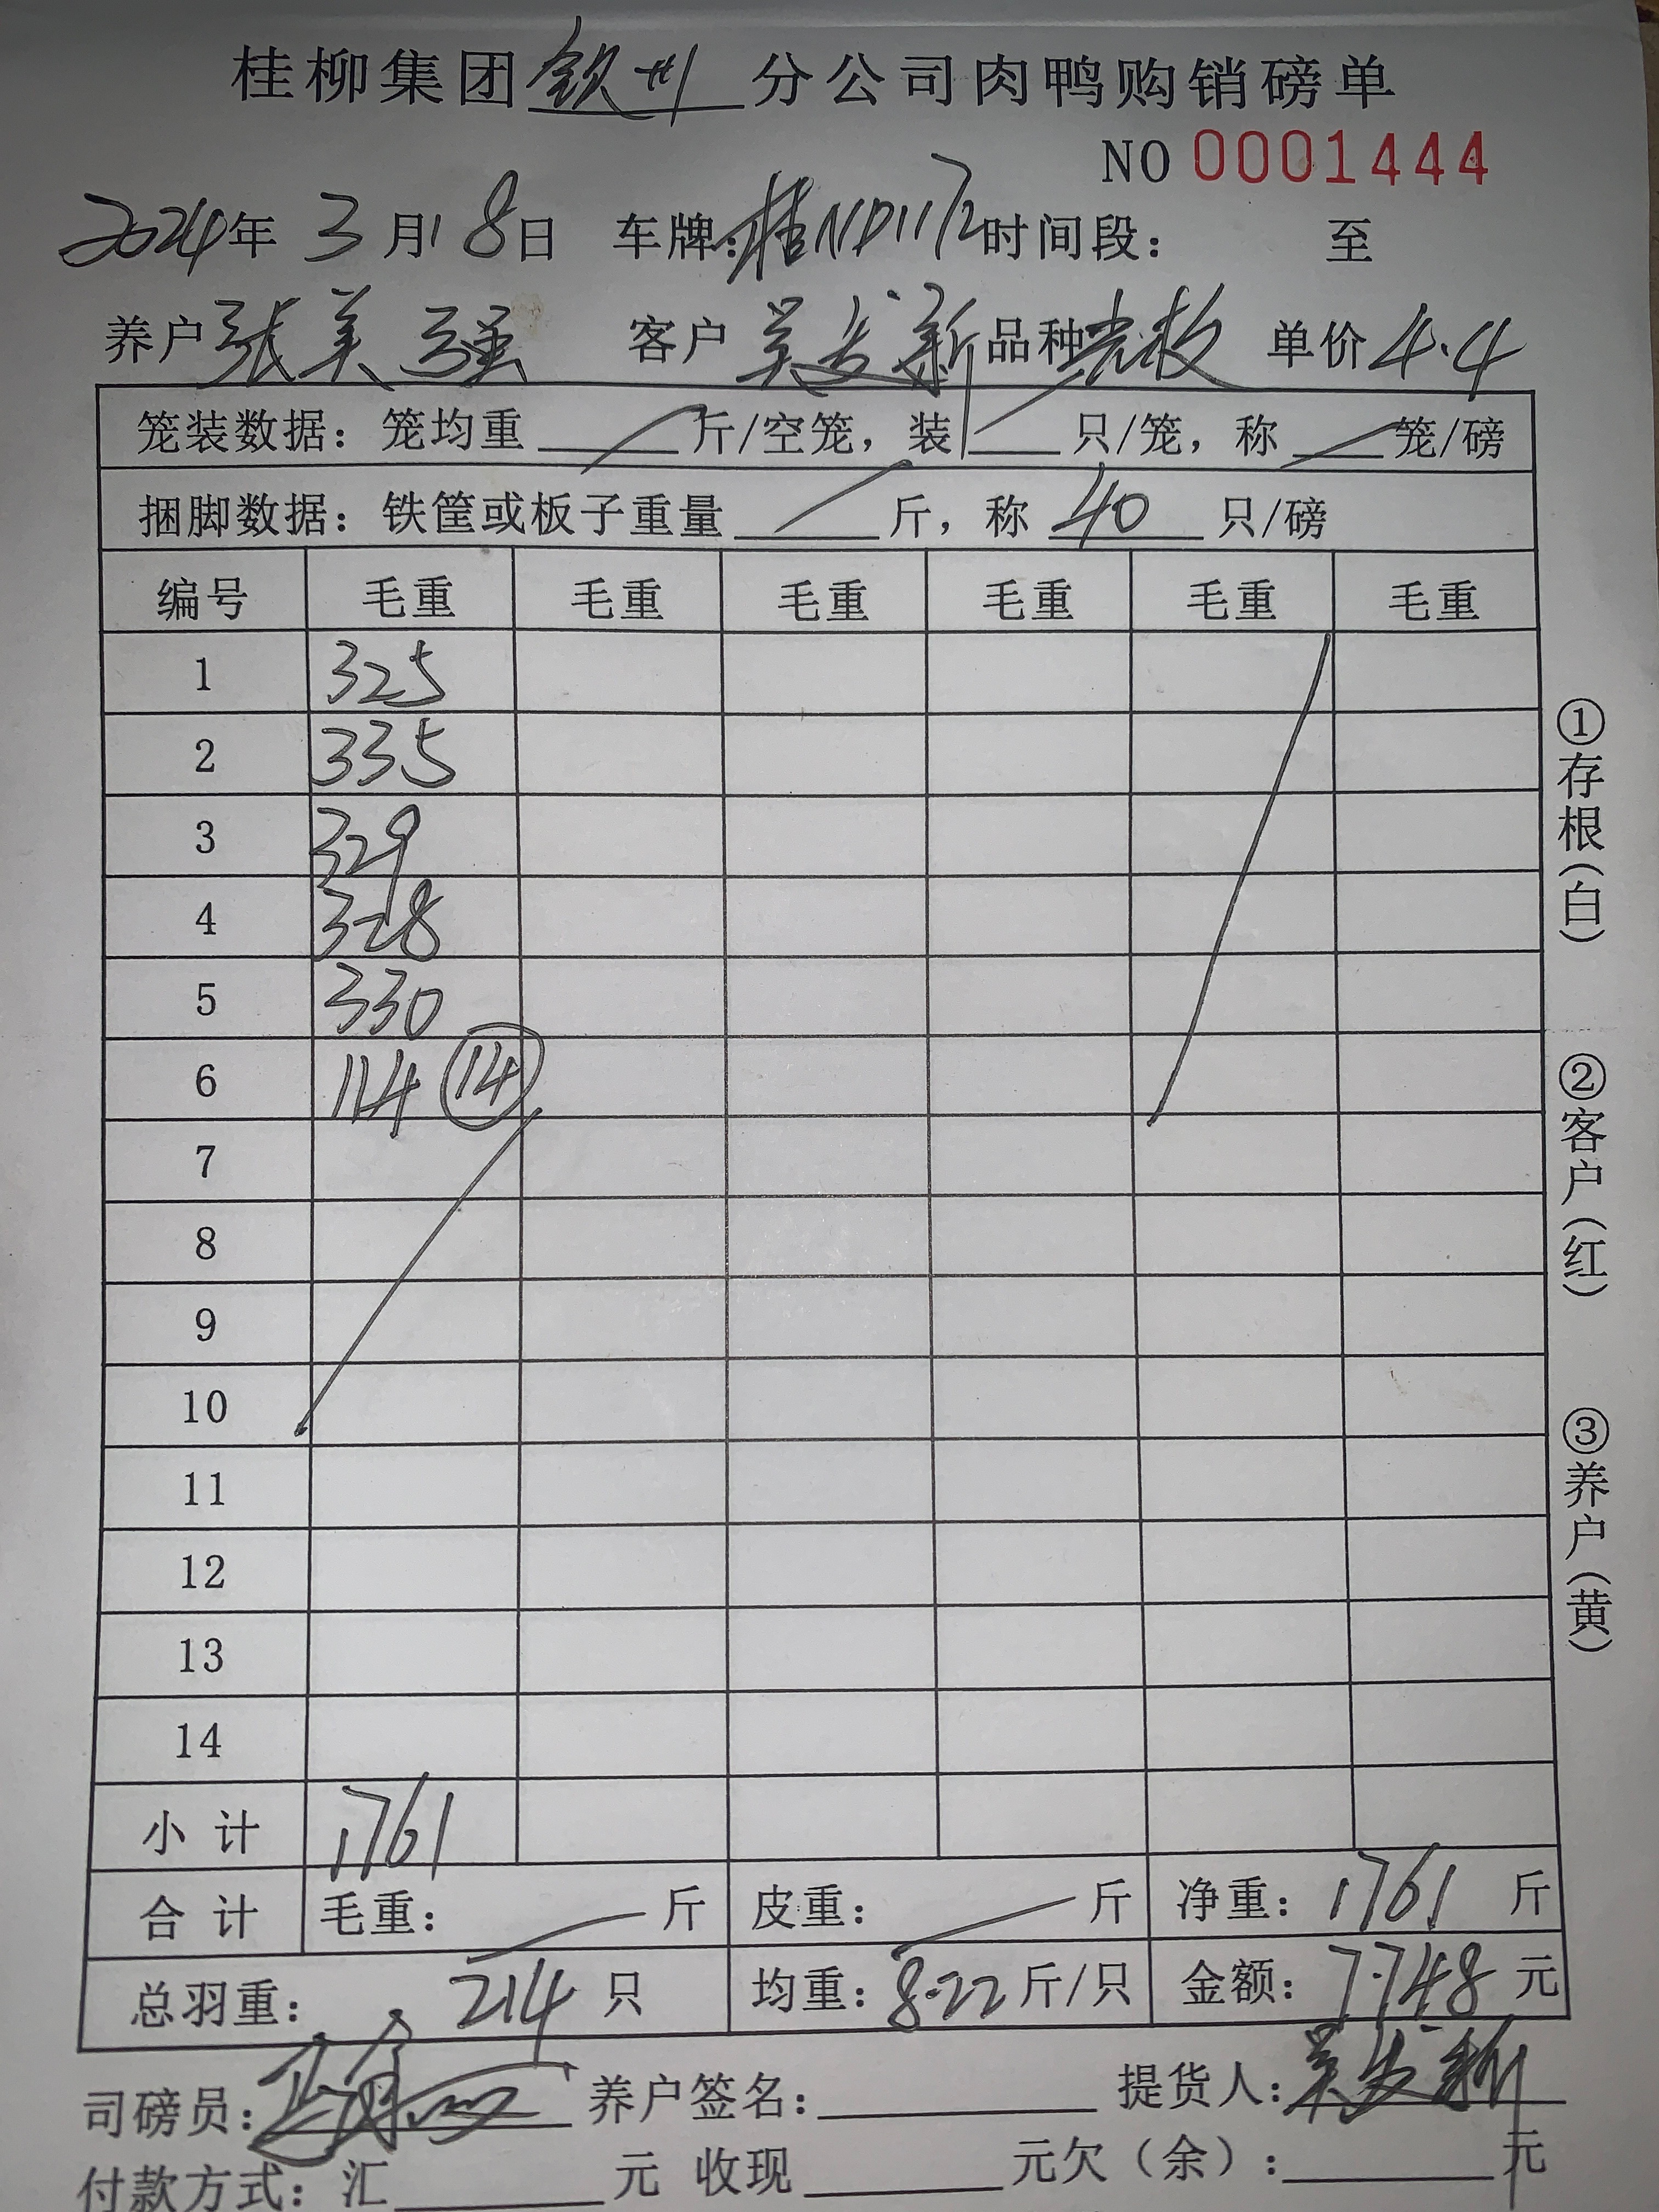 桂柳集团钦州分公司肉鸭购销磅单
NO 0001444
2024年 3 月18日 车牌:桂ND1172 时间段: 至
养户 张美强 客户 吴发新 品种 单价 4.4
笼装数据: 笼均重 斤/空笼, 装 只/笼, 称 笼/磅
捆脚数据: 铁筐或板子重量 斤, 称 40 只/磅
编号 毛重 毛重 毛重 毛重 毛重 毛重
1 325
2 335
3 329
4 328
5 330
6 114 14
7
8
9
10
11
12
13
14
小计 1761
合计 毛重: 斤 皮重: 斤 净重: 1761 斤
总羽重: 214 只 均重: 8.22 斤/只 金额: 7748 元
司磅员: 养户签名: 提货人: 吴发新
付款方式: 汇 元 收现 元欠(余): 元
①存根(白)
②客户(红)
③养户(黄)